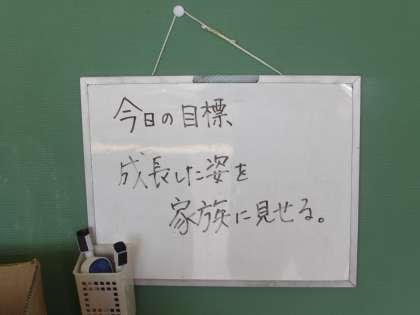 今日の目標
成長した姿を
家族に見せる。